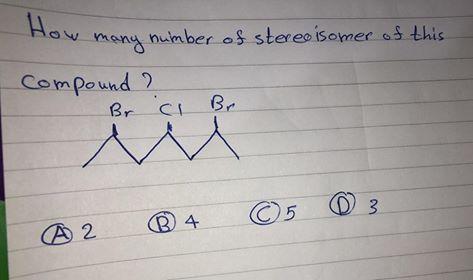 How many number of stereoisomer of this
compound ?
Br Cl Br
A 2 B 4 C 5 D 3